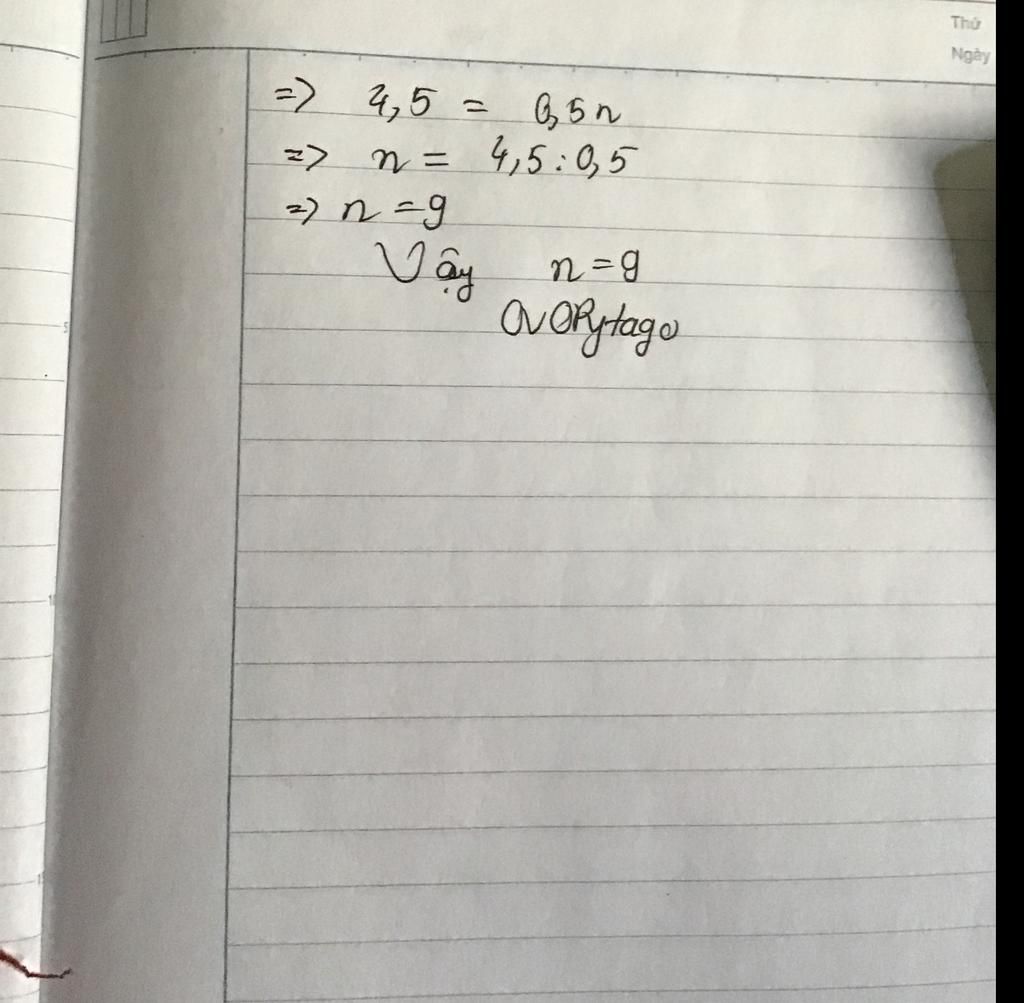 Thứ
Ngày
=> 4,5 = 0,5n
=> n = 4,5 : 0,5
=> n = 9
Vậy n = 9
OVOPytago